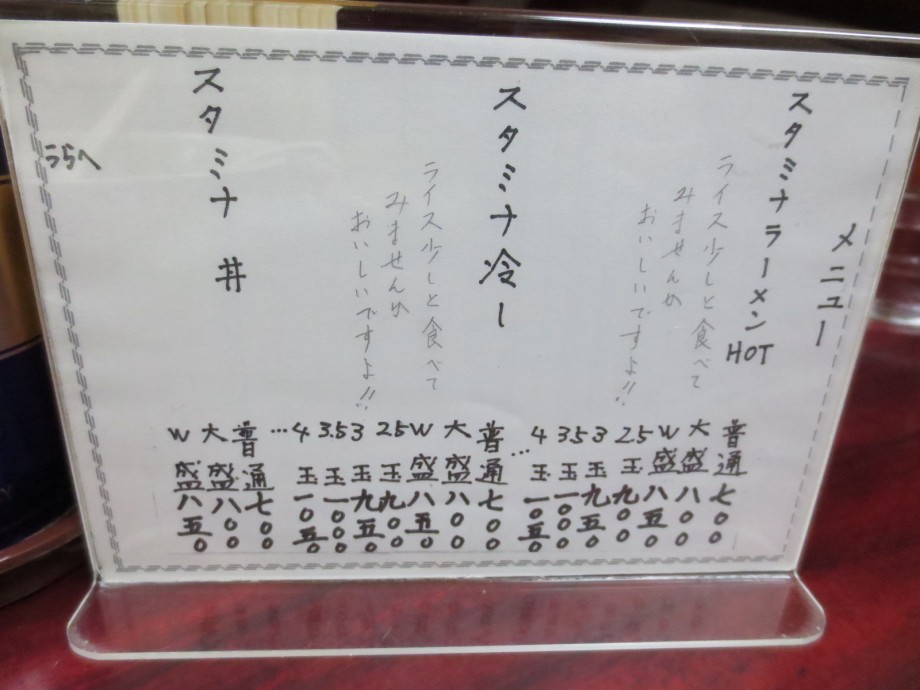 メニュー
スタミナラーメンHOT
ライス少しと食べて
みませんか
おいしいですよ!!
普通七〇〇
大盛八〇〇
W盛八五〇
2.5玉九〇〇
3玉九五〇
3.5玉一〇〇〇
4玉一〇五〇
…
スタミナ冷し
ライス少しと食べて
みませんか
おいしいですよ!!
普通七〇〇
大盛八〇〇
W盛八五〇
2.5玉九〇〇
3玉九五〇
3.5玉一〇〇〇
4玉一〇五〇
…
スタミナ丼
普通七〇〇
大盛八〇〇
W盛八五〇
うらへ